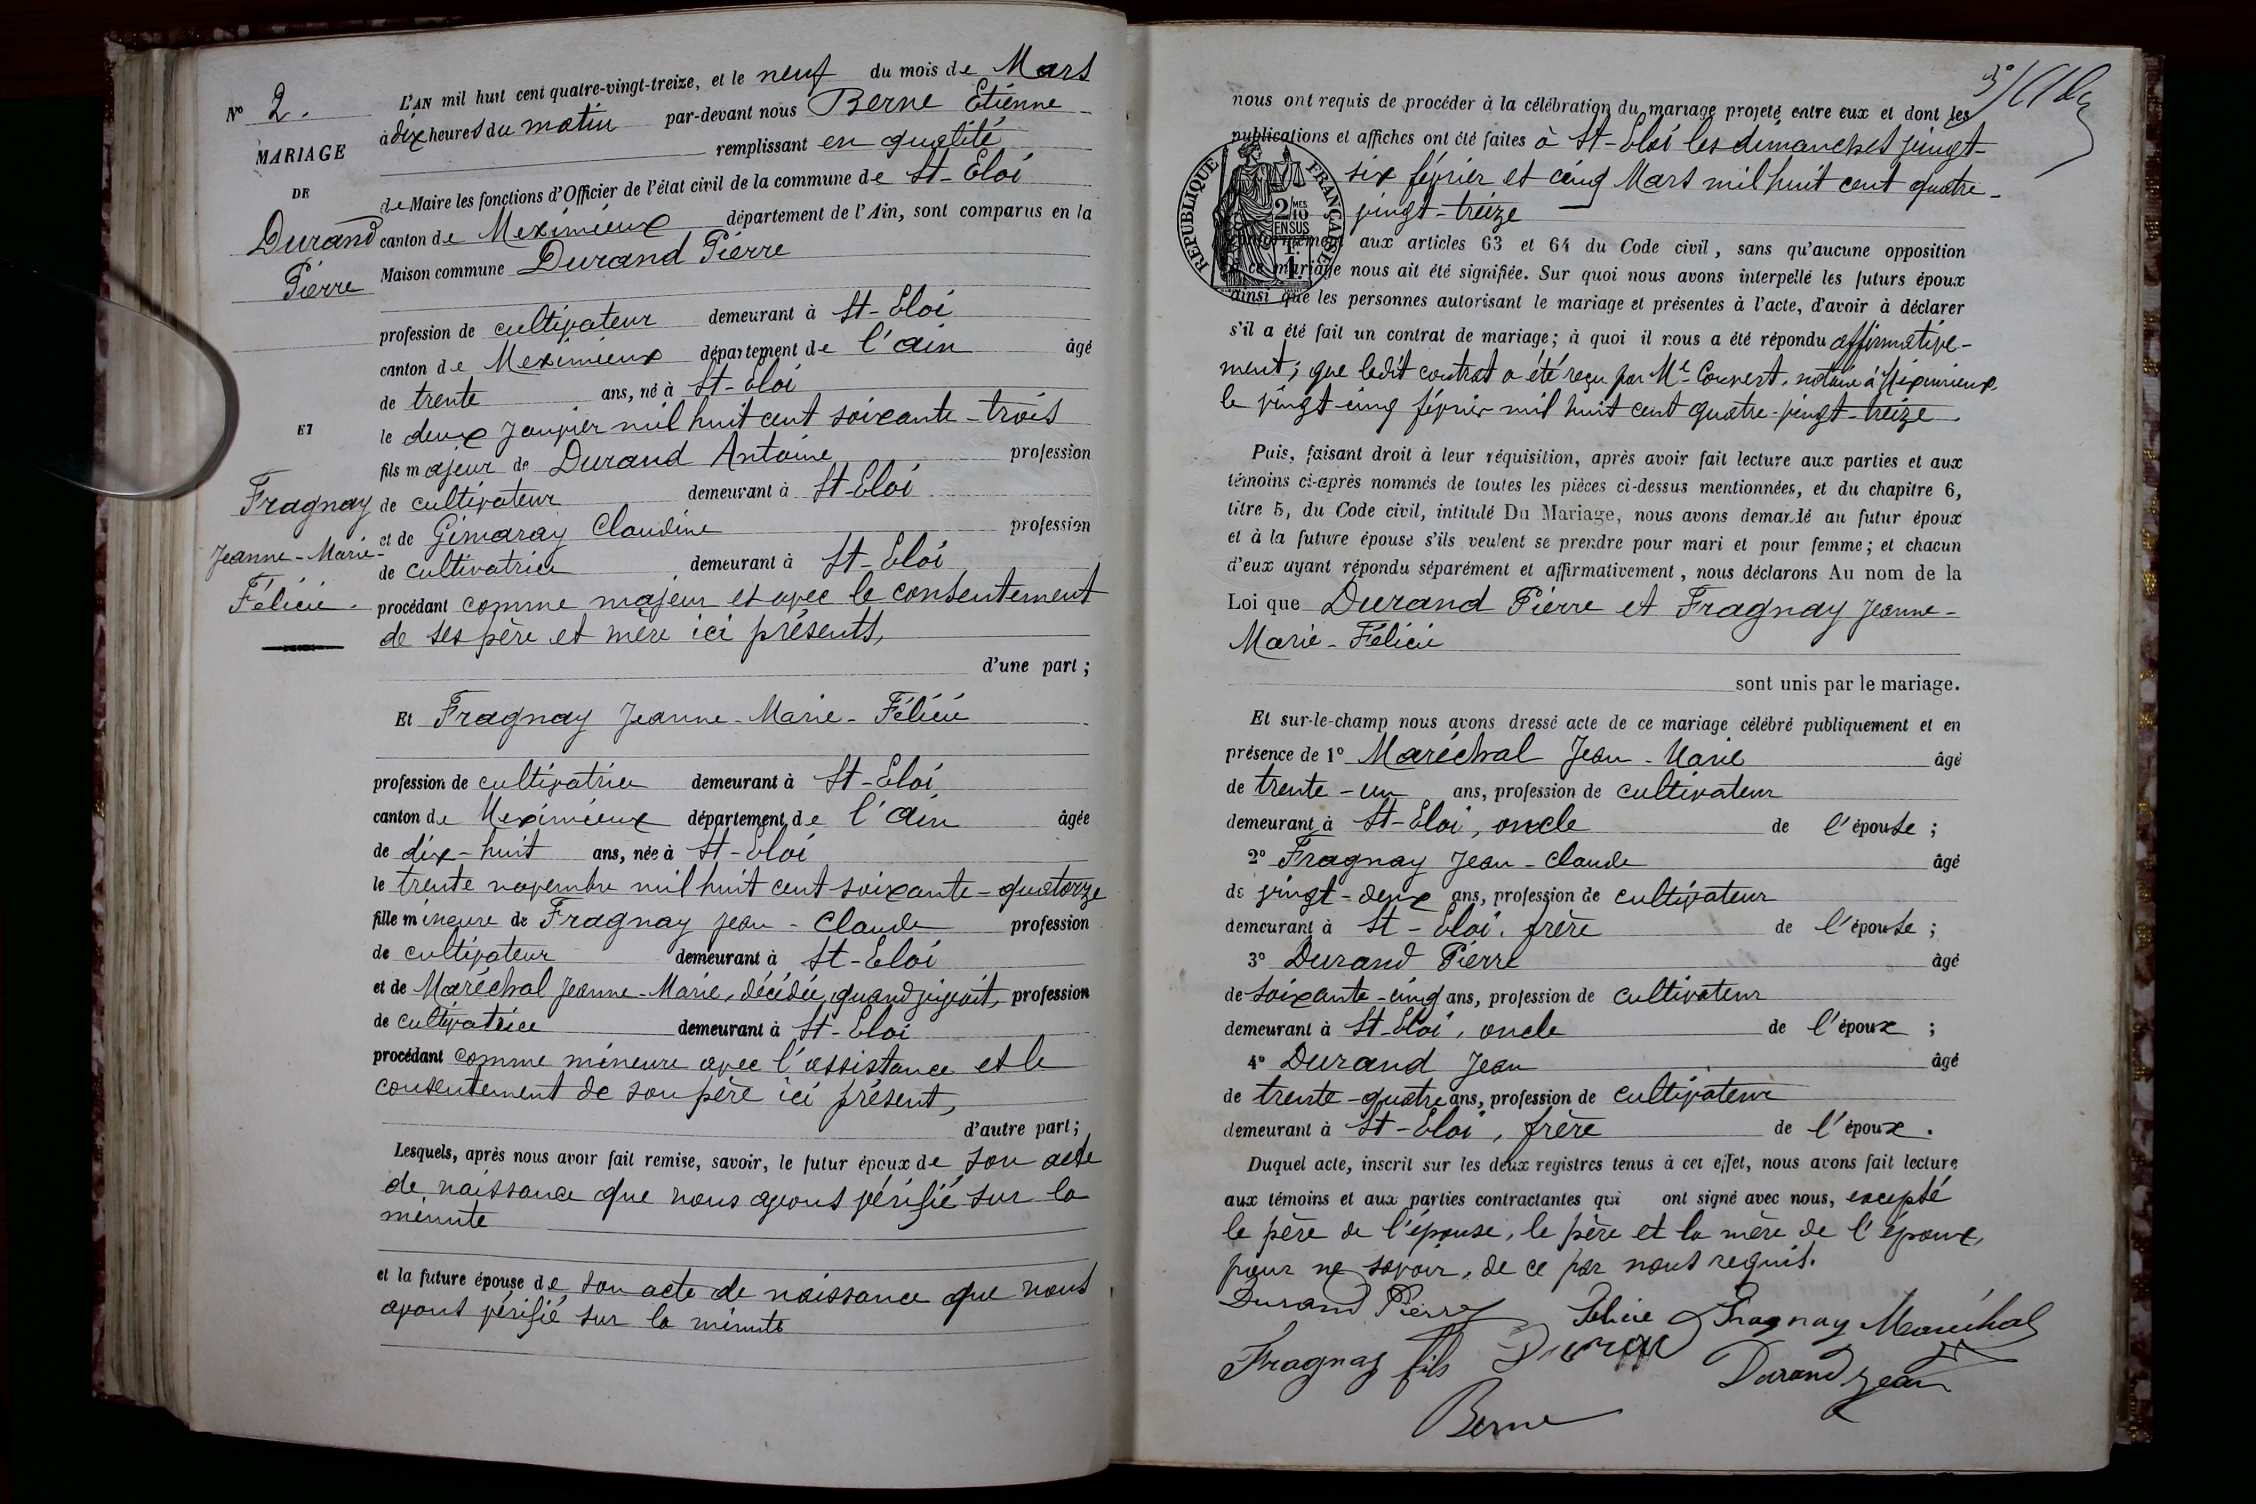 N° 2.
MARIAGE
DE
Durand
Pierre
ET
Fragnay
Jeanne-Marie-
Félicie.
L'AN mil huit cent quatre-vingt-treize, et le neuf du mois de Mars
à dix heures du matin par-devant nous Berne Etienne
remplissant en qualité
de Maire les fonctions d'Officier de l'état civil de la commune de St-Eloi
canton de Meximieux département de l'Ain, sont comparus en la
Maison commune Durand Pierre
profession de cultivateur demeurant à St-Eloi
canton de Meximieux département de l'ain âgé
de trente ans, né à St-Eloi
le deux Janvier mil huit cent soixante-trois
fils majeur de Durand Antoine profession
de cultivateur demeurant à St-Eloi
et de Gimaray Claudine profession
de cultivatrice demeurant à St-Eloi
procédant comme majeur et avec le consentement
de ses père et mère ici présents,
d'une part ;
Et Fragnay Jeanne-Marie-Félicie
profession de cultivatrice demeurant à St-Eloi
canton de Meximieux département de l'ain âgée
de dix-huit ans, née à St-Eloi
le trente novembre mil huit cent soixante-quatorze
fille mineure de Fragnay Jean-Claude profession
de cultivateur demeurant à St-Eloi
et de Maréchal Jeanne-Marie, décédée, quand vivait, profession
de cultivatrice demeurant à St-Eloi
procédant comme mineure avec l'assistance et le
consentement de son père ici présent,
d'autre part ;
Lesquels, après nous avoir fait remise, savoir, le futur époux de son acte
de naissance que nous avons vérifié sur la
minute
et la future épouse de son acte de naissance que nous
avons vérifié sur la minute
nous ont requis de procéder à la célébration du mariage projeté entre eux et dont les
publications et affiches ont été faites à St-Eloi les dimanches vingt-
six février et cinq Mars mil huit cent quatre-
vingt-treize
REPUBLIQUE FRANÇAISE
2/10 MES
EN SUS
1F.
conformément aux articles 63 et 64 du Code civil, sans qu'aucune opposition
à ce mariage nous ait été signifiée. Sur quoi nous avons interpellé les futurs époux
ainsi que les personnes autorisant le mariage et présentes à l'acte, d'avoir à déclarer
s'il a été fait un contrat de mariage; à quoi il nous a été répondu affirmative-
ment; que ledit contrat a été reçu par Me Convert, notaire à Meximieux
le vingt-cinq février mil huit cent quatre-vingt-treize.
Puis, faisant droit à leur réquisition, après avoir fait lecture aux parties et aux
témoins ci-après nommés de toutes les pièces ci-dessus mentionnées, et du chapitre 6,
titre 5, du Code civil, intitulé Du Mariage, nous avons demandé au futur époux
et à la future épouse s'ils veulent se prendre pour mari et pour femme; et chacun
d'eux ayant répondu séparément et affirmativement, nous déclarons Au nom de la
Loi que Durand Pierre et Fragnay Jeanne-
Marie-Félicie
sont unis par le mariage.
Et sur-le-champ nous avons dressé acte de ce mariage célébré publiquement et en
présence de 1° Maréchal Jean-Marie âgé
de trente-un ans, profession de cultivateur
demeurant à St-Eloi, oncle de l'épouse ;
2° Fragnay Jean-Claude âgé
de vingt-deux ans, profession de cultivateur
demeurant à St-Eloi, frère de l'épouse ;
3° Durand Pierre âgé
de soixante-cinq ans, profession de cultivateur
demeurant à St-Eloi, oncle de l'époux ;
4° Durand Jean âgé
de trente-quatre ans, profession de cultivateur
demeurant à St-Eloi, frère de l'époux.
Duquel acte, inscrit sur les deux registres tenus à cet effet, nous avons fait lecture
aux témoins et aux parties contractantes qui ont signé avec nous, excepté
le père de l'épouse, le père et la mère de l'époux,
pour ne savoir, de ce par nous requis.
Durand Pierre Félicie Fragnay Maréchal
Fragnay fils Duran Durand Jean
Berne